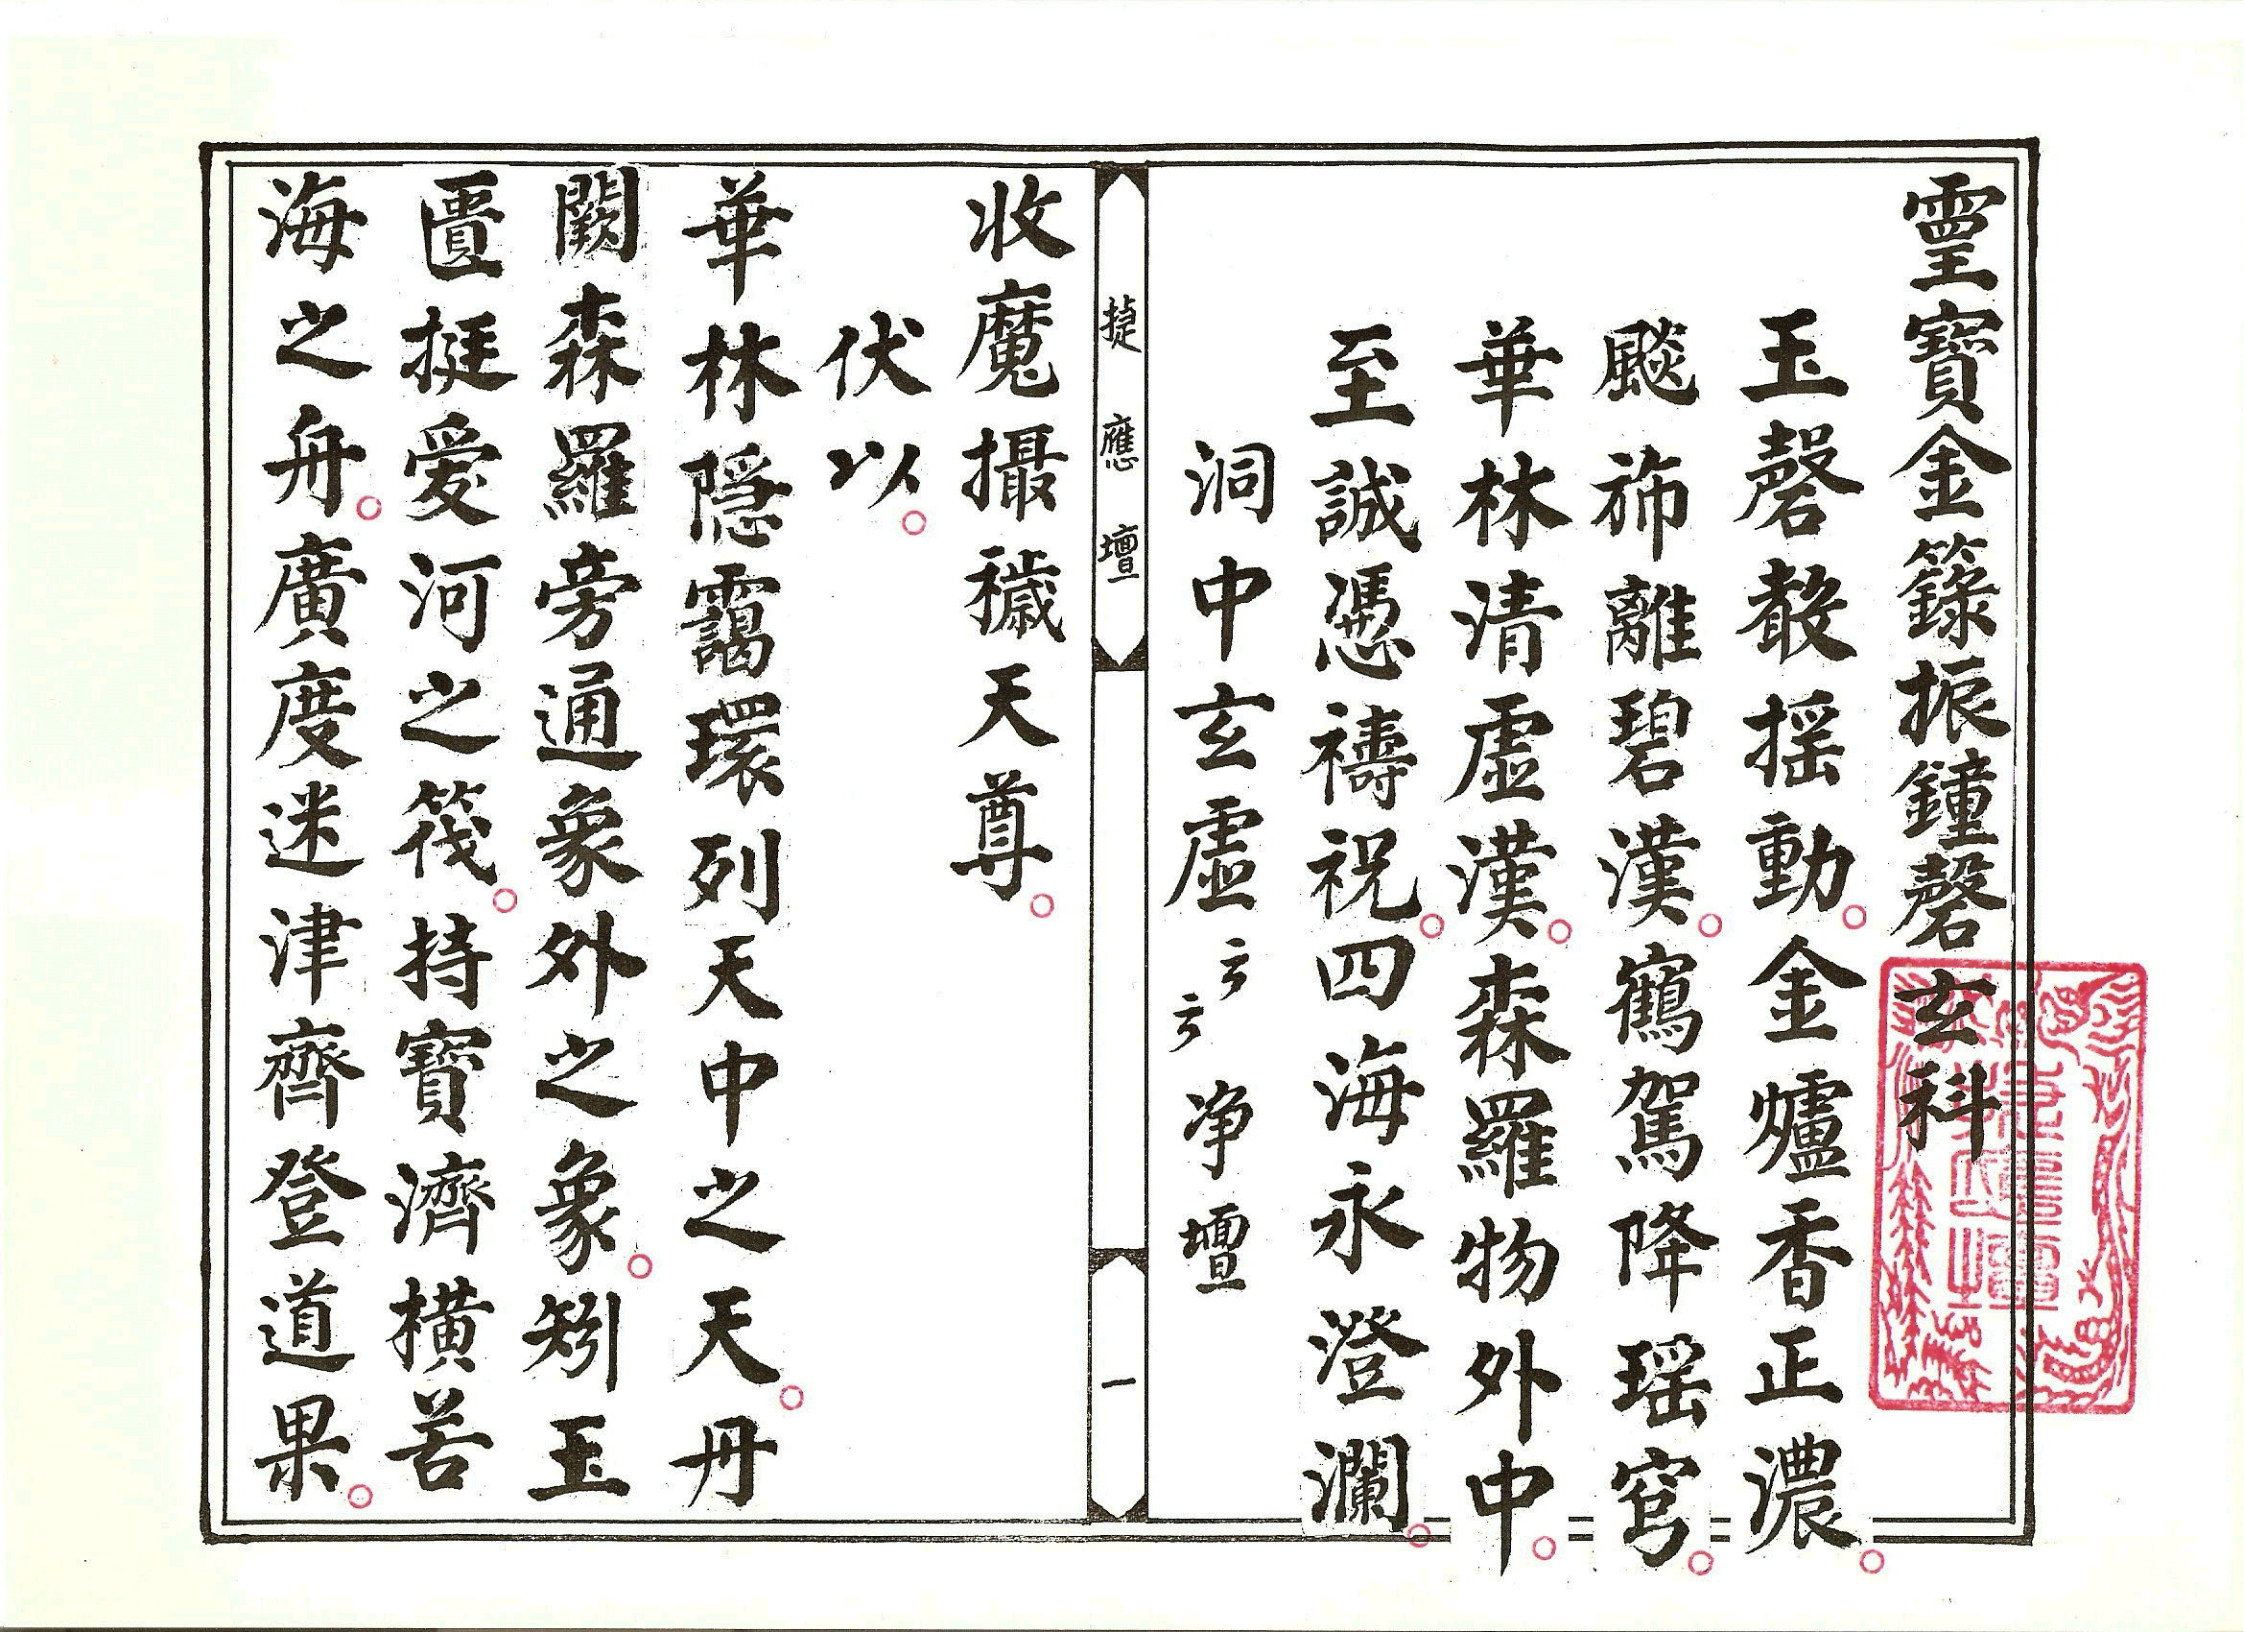 靈寶金籙振鐘磬玄科
玉磬敲摇動。金爐香正濃。
飈斾離碧漢。鶴駕降瑶穹。
華林清虛漢。森羅物外中。
至誠憑禱祝。四海永澄瀾。
洞中玄虛云云净壇
捷應壇 一
收魔攝穢天尊。
伏以。
華林隱靄環列天中之天。丹
闕森羅旁通象外之象。矧玉
匱挺愛河之筏。持寶濟橫苦
海之舟。廣度迷津齊登道果。